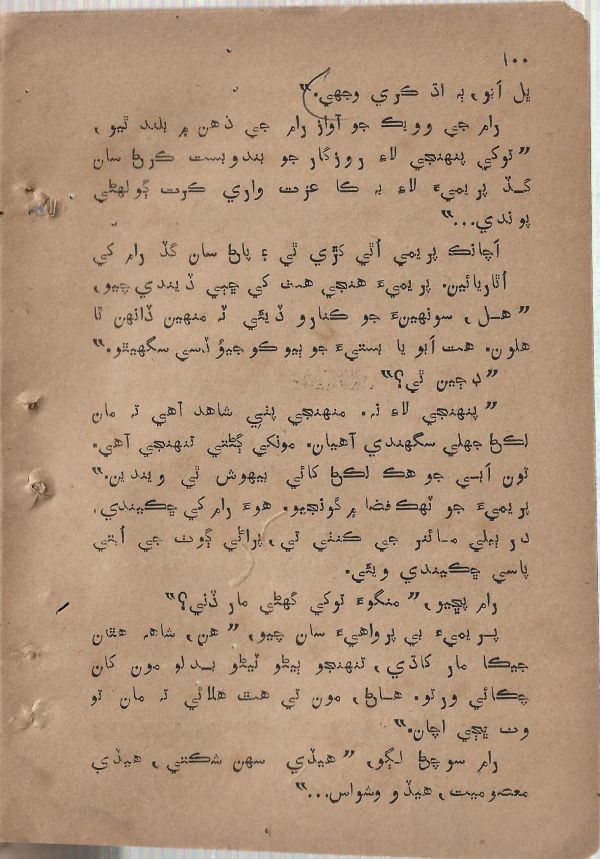 ١٠٠
ڀل اَبو، به اڌ ڪري وجهي.“
رام جي وويڪ جو آواز رام جي ذهن ۾ بلند ٿيو،
”توکي پنهنجي لاءِ روزگار جو بندوبست ڪرڻ سان
گڏ پريميءَ لاءِ به ڪا عزت واري ڪرت ڳولهڻي
پوندي...“
اَچانڪ پريمي اُٿي کڙي ٿي ۽ پاڻ سان گڏ رام کي
اُٿاريائين. پريميءَ هنجي هٿ کي ڇڪي ڏيندي چيو،
”هل، سونهينءَ جو ڪنارو ڏيئي ٽه منهين ڏانهن ٿا
هلون. هت اَبو يا بستيءَ جو ٻيو ڪو جيوُ ڏسي سگهيٿو.“
”ڊڄين ٿي؟“
”پنهنجي لاءِ نه. منهنجي پٺي شاهد آهي ته مان
لڪڻ جهلي سگهندي آهيان. مونکي ڳڻتي تنهنجي آهي.
تون اَبي جو هڪ لڪڻ کائي بيهوش ٿي ويندين.“
پريميءَ جو ٽهڪ فضا ۾ گونجيو. هوءَ رام کي ڇڪيندي،
در ٻيلي مائنر جي ڪنٺي تي، پراڻي ڳوٺ جي اُبتي
پاسي ڇڪيندي ويئي.
رام پڇيو، ”منگوءَ توکي گهڻي مار ڏني؟“
پريميءَ بي پرواهيءَ سان چيو، ”هن، شاهه هٿان
جيڪا مار کاڌي، تنهنجو ٻيڻو ٽيڻو بدلو مون کان
چڪائي ورتو. هاڻ، مون تي هٿ هلائي ته مان تو
وٽ ڀڄي اچان.“
رام سوچڻ لڳو، ”هيڏي سهن شڪتي، هيڏي
معصوميت، هيڏو وشواس...“